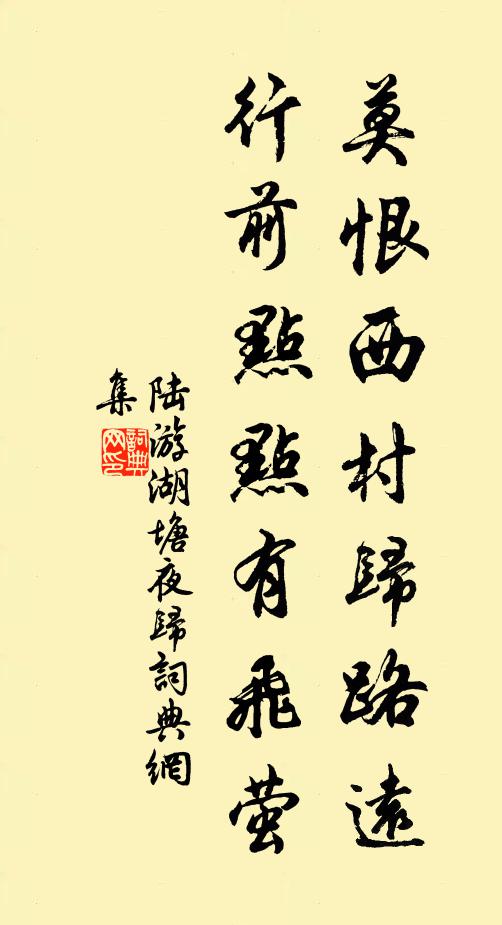 莫恨西村歸路遠
行前點點有飛萤
陆游湖塘夜歸詞典網
集
詞典
网印